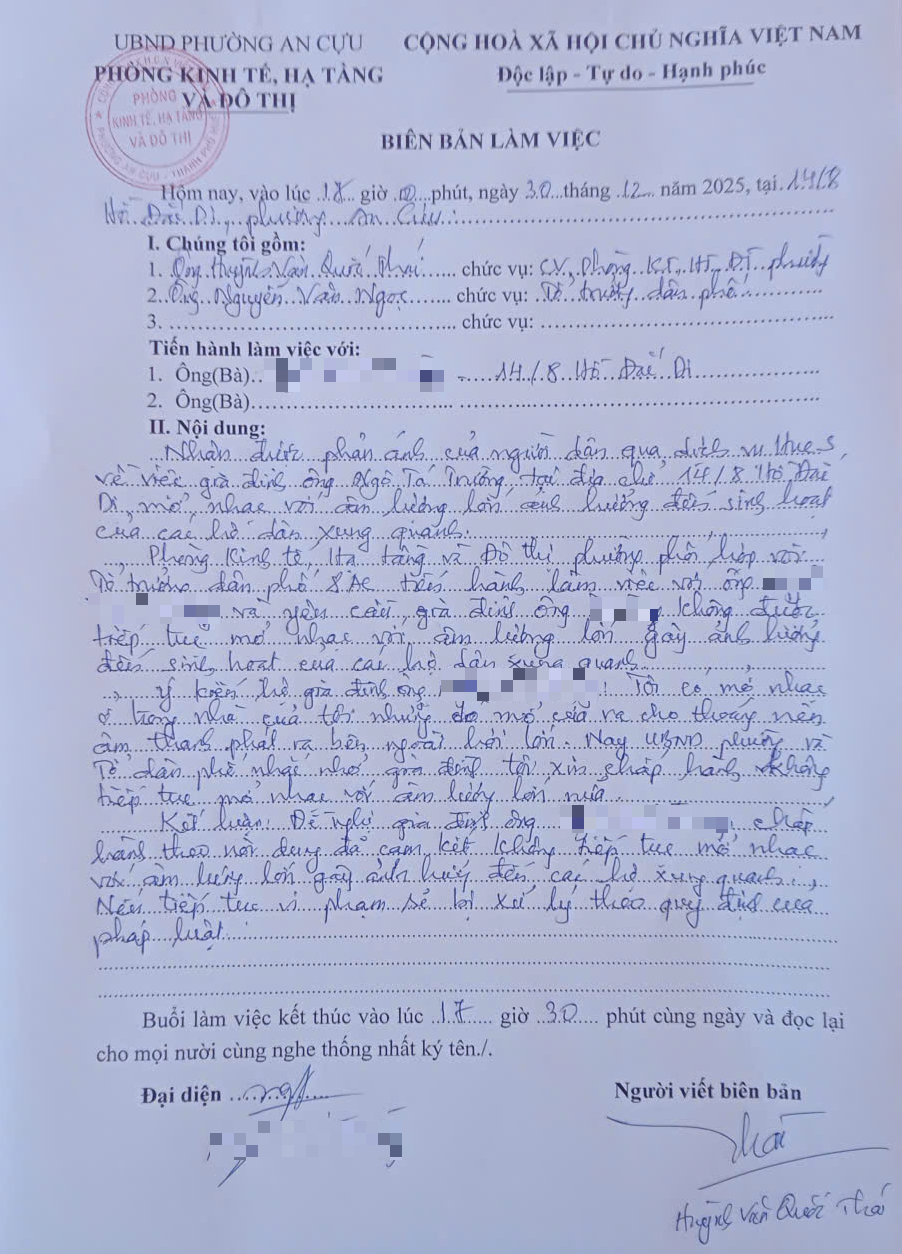 UBND PHƯỜNG AN CỰU
CỘNG HOÀ XÃ HỘI CHỦ NGHĨA VIỆT NAM
PHÒNG KINH TẾ, HẠ TẦNG
VÀ ĐÔ THỊ
Độc lập - Tự do - Hạnh phúc
PHÒNG
KINH TẾ, HẠ TẦNG
VÀ ĐÔ THỊ
BIÊN BẢN LÀM VIỆC
Hôm nay, vào lúc 17 giờ 00 phút, ngày 30 tháng 12 năm 2025, tại 14/8
Hồ Đắc Di, phường An Cựu.
I. Chúng tôi gồm:
1. Ông Huỳnh Văn Quốc Thái chức vụ: CV, Phòng KT, HT, ĐT phường
2. Ông Nguyễn Văn Ngọc chức vụ: Tổ trưởng dân phố
3. chức vụ:
Tiến hành làm việc với:
1. Ông(Bà) - 14/8 Hồ Đắc Di
2. Ông(Bà)
II. Nội dung:
Nhận được phản ánh của người dân qua dịch vụ Hue_S
về việc gia đình ông Ngô Tá Trưởng tại địa chỉ 14/8 Hồ Đắc
Di, mở nhạc với âm lượng lớn ảnh hưởng đến sinh hoạt
của các hộ dân xung quanh.
Phòng Kinh tế, Hạ tầng và Đô thị phường phối hợp với
Tổ trưởng dân phố tiến hành làm việc với ông
và yêu cầu gia đình ông không được
tiếp tục mở nhạc với âm lượng lớn gây ảnh hưởng
đến sinh hoạt của các hộ dân xung quanh
Ý kiến hộ gia đình ông : Tôi có mở nhạc
ở trong nhà của tôi nhưng do mở cửa ra cho thoáng nên
âm thanh phát ra bên ngoài hơi lớn. Nay UBND phường và
Tổ dân phố nhắc nhở gia đình tôi xin chấp hành không
tiếp tục mở nhạc với âm lượng lớn nữa.
Kết luận: Đề nghị gia đình ông chấp
hành theo nội dung đã cam kết không tiếp tục mở nhạc
với âm lượng lớn gây ảnh hưởng đến các hộ xung quanh.
Nếu tiếp tục vi phạm sẽ bị xử lý theo quy định của
pháp luật
Buổi làm việc kết thúc vào lúc 17 giờ 30 phút cùng ngày và đọc lại
cho mọi nười cùng nghe thống nhất ký tên./.
Đại diện
Người viết biên bản
Huỳnh Văn Quốc Thái